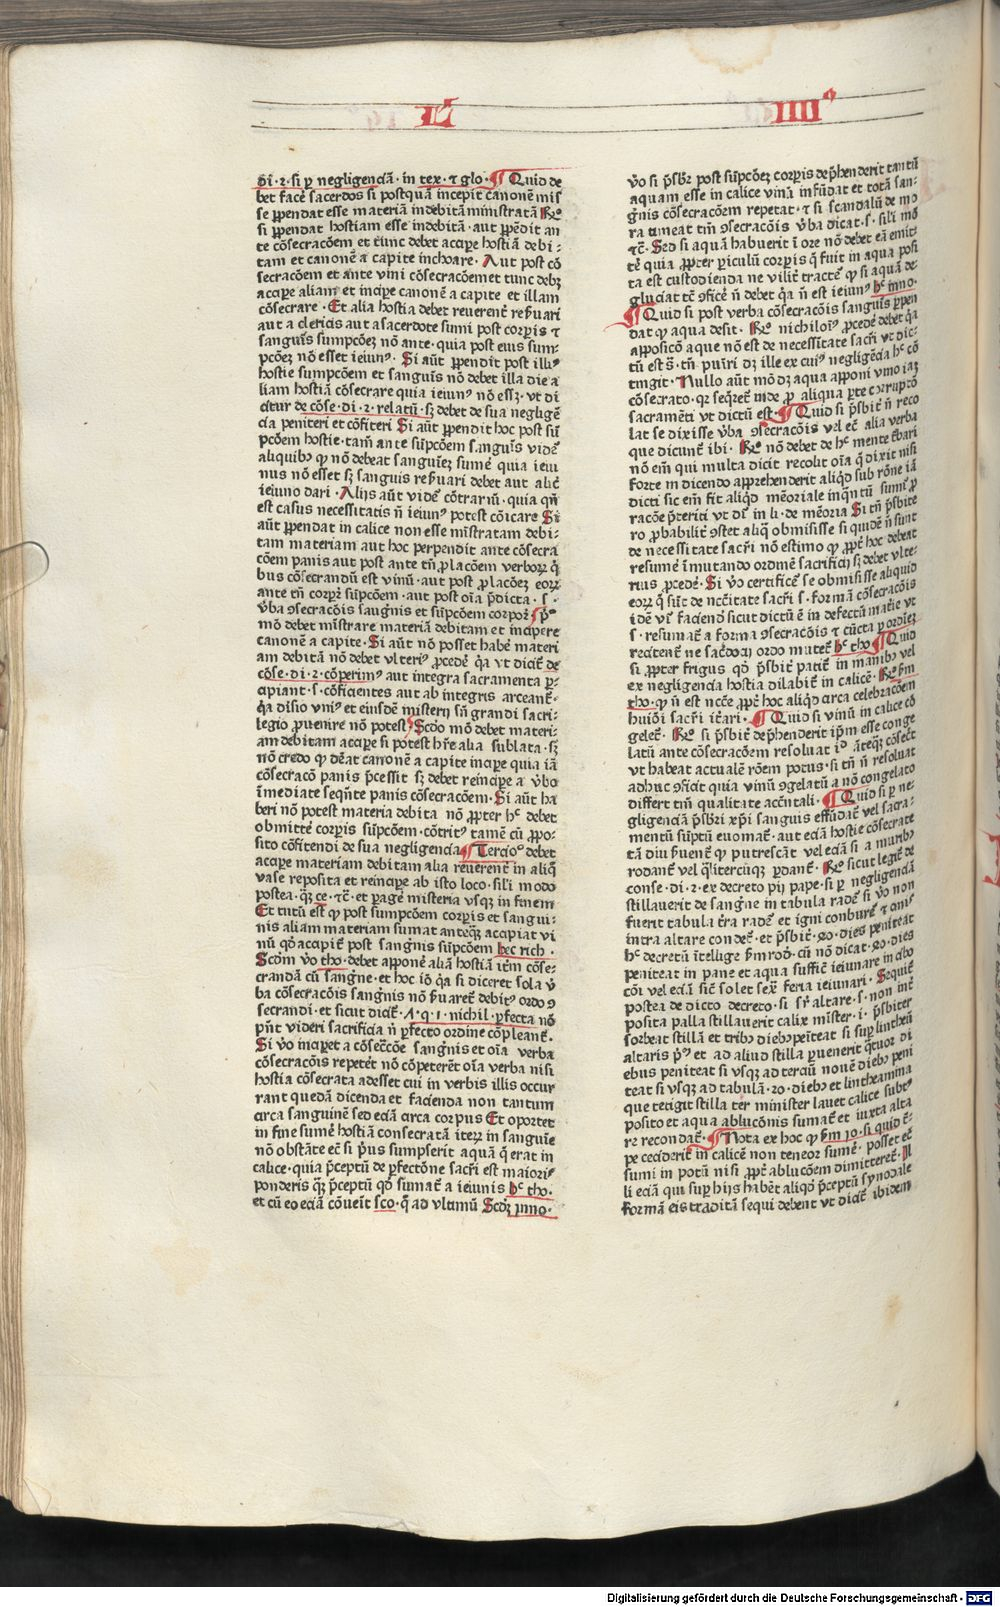 L IIII°
di·2·si ꝑ negligenciā· in tex·⁊ glo· ¶ Quid de
bet facē sacerdos si postquā incepit canonē mis
se ꝑpendat esse materiā indebitā ministratā ꝶ°
si ꝑpendat hostiam esse indebitā· aut ꝑpēdit an
te cōsecracōem et tūnc debet accipe hostiā debi⸗
tam et canonē a capite inchoare· Aut post cō
secracōem et ante vini cōsecracōem et tunc debꝫ
accipe aliam et incipe canonē a capite et illam
cōsecrare· Et alia hostia debet reuerent͛ reẜuari
aut a clericis aut a sacerdote sumi post corꝑis ⁊
sanguis̄ sumpcōeꝫ nō ante· quia post eius sum⸗
pcōeꝫ nō esset ieiunꝰ· Si aūt ꝑpendit post illiꝰ
hostie sumpcōem et sanguis̄ nō debet illa die a
liam hostiā cōsecrare quia ieiunꝰ nō essꝫ· vt di
citur de cōse·di·2·relatū·sꝫ debet de sua negligē
cia peniteri et cōfiteri Si aūt ꝑpendit hoc post sū
pcōem hostie· tam̄ ante sūpcōem sanguis̄ videt͛
aliquibꝰ ꝙ nō debeat sanguieꝫ sumē quia ieiu
nus nō esset sꝫ sanguis reẜuari debet aut alic͛
ieiuno dari· Alijs aūt videt͛ cōtrariū· quia qn̄
est casus necessitatis n̄ ieiunꝰ potest cōicare Si
aūt ꝑpendat in calice non esse mīstratam debi⸗
tam materiam aut hoc perpendit ante cōsecra
cōem panis aut post ante tn̄ ꝓlacōem verboꝝ q̄
bus cōsecrandū est vinū· aut post ꝓlacōeꝫ eoꝝ
ante tn̄ corꝑis sūpcōem· aut post oīa p̄dicta· s·
v̄ba ꝯsecracōis sāgnis et sūpcōem corꝑis p̄°
mō debet mīstrare materiā debitam et incipere
canonē a capite· Si aūt nō posset habē materi
am debitā nō debet vlteriꝰ ꝓcedē q̇a vt dicit͛ de
cōse·di·2·cōperimꝰ aut integra sacramenta ꝑ⸗
cipiant·s·cōficientes aut ab integris arceant͛·
q̇a diſio vniꝰ et eiusdē misterij sn̄ grandi sacri⸗
legio ꝓuenire nō potest Scd̄o mō debet materi⸗
am debitam accipe si potest hr̄e alia sublata·sꝫ
nō credo ꝙ debeat canonē a capite incipe quia iā
cōsecracō panis p̄cessit sꝫ debet reincipe a v̄bo
īmediate seqn̄te panis cōsecracōem· Si aūt ha
beri nō potest materia debita nō ꝓpter hͨ debet
obmittē corꝑis sūpcōem· cōtritꝰ tamē cū ꝓpo⸗
sito cōfitendi de sua negligencia ¶ Tercio° debet
accipe materiam debitam alia reuerent͛ in aliq̇
vase reposita et reincipe ab isto loco· sili modo
postea·q̇ꝫ ce·⁊c̄· et ꝑagē misteria vsqꝫ in finem
Et tutū est ꝙ post sumpcōem corꝑis et sangui⸗
nis aliam materiam sumat anteq̇ꝫ accipiat vi
nū qd̄ accipit͛ post sanḡnis sūpcōem hec rich·
Scdm v̄o tho· debet apponē aliā hostiā it͛m cōse⸗
crandā cū sanḡne· et hoc iō q̇a si diceret sola v̄
ba cōsecracōis sanḡnis nō ẜuaret͛ debitꝰ ordo ꝯ
secrandi· et sicut dicit͛·1·q·1·nichil·ꝑfecta nō
pn̄t videri sacrificia n̄ ꝑfecto ordine cōpleant͛·
Si v̄o inciꝑet a cōsec̄cōe sanḡnis et oīa verba
cōsecracōis repetēt nō cōpeterēt oīa verba nisi
hostia cōsecrata adesset cui in verbis illis occur
rant quedā dicenda et facienda non tantum
circa sanguinē sed eciā circa corpus Et oportet
in fine sumē hostiā consecratā iteꝝ in sanguie
nō obstāte ec̄ si p̄us sumpserit aquā q̄ erat in
calice· quia p̄ceptū de ꝑfectōne sacr̄i est maioriꝰ
ponderis q̇ꝫ p̄ceptū qd̄ sumat͛ a ieiunis hͨ tho·
et cū eo eciā cōueīt sco· q̇ ad vltimū Scdꝫ inno·
v̄o si p̄sbr̄ post sūpcōeꝫ corꝑis dep̄henderit tantū
aquam esse in calice vinū infūdat et totā san⸗
ḡnis cōsecracōꝝ repetat· ⁊ si scandalū de mo
ra timeat tm̄ ꝯsecracōis v̄ba dicat·s·sili mō
⁊c̄· Sed si aquā habuerit ī ore nō debet eā emit⸗
tē quia ꝓpter ꝑiculū corꝑis q̄ fuit in aqua posi
ta est custodienda ne vilit͛ tractet͛ ꝙ si aquā de⸗
gluciat tc̄ ꝯficē n̄ debet q̇a n̄ est ieiunꝰ hͨ inno·
¶ Quid si post verba cōsecracōis sanguis̄ ꝑpen
dat ꝙ aqua desit· ꝶ° nichiloīꝰ ꝓcedē debet q̇a
apposicō aque nō est de necessitate sacr̄i vt dic⸗
tū est·s· tn̄ puīri dꝫ ille ex cuiꝰ negligēcia hͨ cō
tingit· Nullo aūt mō dꝫ aqua apponi vino iaꝫ
cōsecrato· qꝛ seq̄ret͛ inde ꝓ aliqua ꝑte corruptō
sacramēti vt dictū est· ¶ Quid si p̄sbit͛ n̄ reco
lat se dixisse v̄ba ꝯsecracōis vel ec̄ alia verba
que dicunt͛ ibi· ꝶ° nō debet de hͨ mente t̄bari
nō em̄ qui multa dicit recolit oīa q̄ dixit nisi
forte in dicendo apprehenderit aliq̇d sub rōne iā
dicti sic em̄ fit aliq̇d mēoriale inq̇ntū sumit͛ ꝓ
racōe p̄teriti vt dr̄ in li·de mēoria Si tn̄ p̄sbite
ro ꝓbabilit͛ ꝯstet aliq̇ obmisisse si quidē n̄ sunt
de necessitate sacr̄i nō estimo ꝙ ꝓpt͛ hoc debeat
resumē īmutando ordinē sacrificij sꝫ debet vlte⸗
rius ꝓcedē· Si v̄o certificet͛ se obmisisse aliquid
eoꝝ q̄ sūt de nccītate sacr̄i s·formā cōsecracōis
idē vr̄ faciend̄ sicut dictū ē in defectū mat͛ie vt
s· resumat͛ a forma ꝯsecracōis ⁊ cūcta ꝑ ordīeꝫ
recitent͛ ne sac͛docij ordo mutet͛ hͨ tho ¶ Quid
si ꝓpter frigus qd̄ p̄sbit͛ patit͛ in manibꝰ vel
ex negligencia hostia dilabit͛ in calicē· ꝶ° ẜm
tho· ꝙ n̄ est ncc̄e ꝓpt͛ hoc aliq̇d circa celebracōem
huiōi sacr̄i it͛ari· ¶ Quid si vinū in calice cō
gelet͛· ꝶ° si p̄sbit͛ dep̄henderit ip̄m esse conge
latū ante cōsecracōꝝ resoluat id anteq̇ꝫ cōsec͛t
vt habeat actualē rōem potus· si tn̄ n̄ resoluat
adhuc ꝯficit quia vinū ꝯgelatū a nō congelato
differt tm̄ qualitate accn̄tali· ¶ Quid si ꝑ ne⸗
gligenciā p̄sbr̄i xp̄i sanguis effūdat͛ vel sacra⸗
mentū sūptū euomat͛· aut eciā hostie cōsecrate
tā diu ẜuent͛ ꝙ putrescāt vel eciā si a muribꝰ
rodant͛ vel q̇litercūqꝫ ꝑdant͛· ꝶ° sicut legit͛ de
conse·di·2·ex decreto pij pape·si ꝑ negligenciā
stillauerit de sanḡne in tabula radet͛ si v̄o non
fuerit tabula t͛ra radet͛ et igni conburet͛ ⁊ cinis
intra altare condet͛· et p̄sbit͛·40·dies peniteat
hͨ decretū ītellige ẜm rod̄· cū nō dicat·40·dies
peniteat in pane et aqua sufficit͛ ieiunare in cibo
cōi vel eciā sic̄ solet sex͛ feria ieiunari· Sequit͛
postea de dicto decreto· si sr̄ altare·s·non int͛
posita palla stillauerit calix mīster·i· p̄sbiter
sorbeat stillā et tribꝰ diebꝰ peīteat si suꝑ lintheū
altaris p̄ꝰ et ad aliud stilla ꝑuenerit q̇tuor di
ebus peniteat si vsqꝫ ad terciū nouē diebꝰ peni
teat si vsqꝫ ad tabulā·20·diebꝰ et lintheamina
que tetigit stilla ter minister lauet calice subtꝰ
posito et aqua ablucōnis sumat͛ et iuxta alta
re recondat͛· ¶ Nota ex hoc ꝙ ẜm io·si quid t͛⸗
pe ceciderit in calicē non teneor sumē· posset ec̄
sumi in potū nisi ꝓpt͛ ablucōem dimitteret͛· Il
li eciā qui suꝑ hijs habēt aliq̇d p̄ceptū synodale
formā eis traditā sequi debent vt dicit͛ ibidem
Digitalisierung gefördert durch die Deutsche Forschungsgemeinschaft - DFG